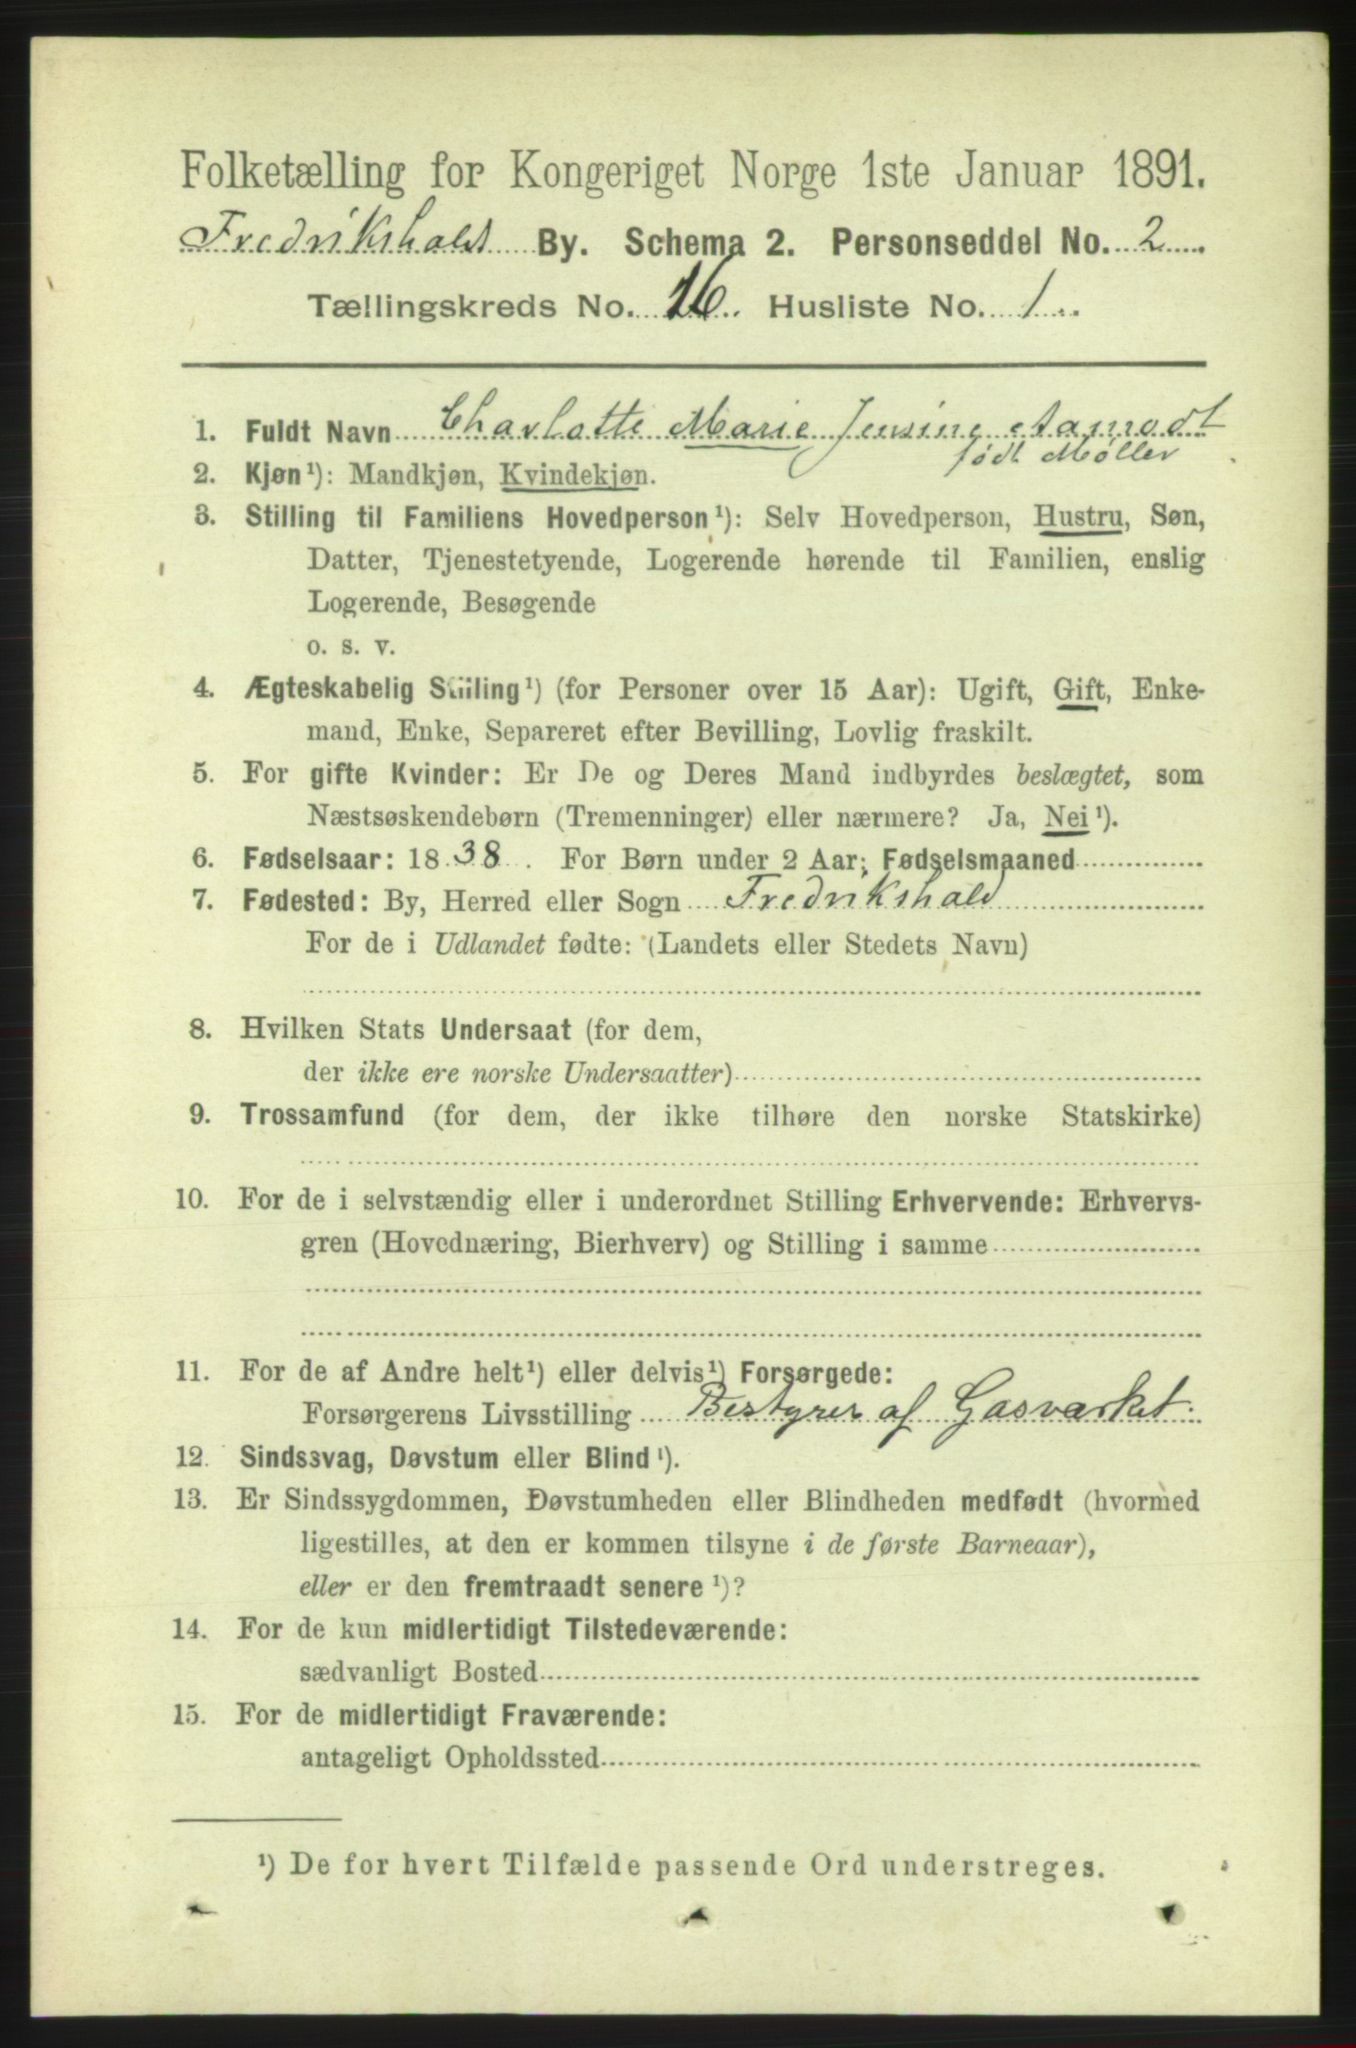 Folketælling for Kongeriget Norge 1ste Januar 1891.
Fredrikshald By. Schema 2. Personseddel No. 2
Tællingskreds No. 16. Husliste No. 1.
1. Fuldt Navn Charlotte Marie Jensine Aamodt
født Møller
2. Kjøn¹): Mandkjøn, Kvindekjøn.
3. Stilling til Familiens Hovedperson¹): Selv Hovedperson, Hustru, Søn,
Datter, Tjenestetyende, Logerende hørende til Familien, enslig
Logerende, Besøgende
o. s. v.
4. Ægteskabelig Stilling¹) (for Personer over 15 Aar): Ugift, Gift, Enke-
mand, Enke, Separeret efter Bevilling, Lovlig fraskilt.
5. For gifte Kvinder: Er De og Deres Mand indbyrdes beslægtet, som
Næstsøskendebørn (Tremenninger) eller nærmere? Ja, Nei¹).
6. Fødselsaar: 1838. For Børn under 2 Aar: Fødselsmaaned
7. Fødested: By, Herred eller Sogn Fredrikshald
For de i Udlandet fødte: (Landets eller Stedets Navn)
8. Hvilken Stats Undersaat (for dem,
der ikke ere norske Undersaatter)
9. Trossamfund (for dem, der ikke tilhøre den norske Statskirke)
10. For de i selvstændig eller i underordnet Stilling Erhvervende: Erhvervs-
gren (Hovednæring, Bierhverv) og Stilling i samme
11. For de af Andre helt¹) eller delvis¹) Forsørgede:
Forsørgerens Livsstilling Bestyrer af Gasværket.
12. Sindssvag, Døvstum eller Blind¹).
13. Er Sindssygdommen, Døvstumheden eller Blindheden medfødt (hvormed
ligestilles, at den er kommen tilsyne i de første Barneaar),
eller er den fremtraadt senere¹)?
14. For de kun midlertidigt Tilstedeværende:
sædvanligt Bosted
15. For de midlertidigt Fraværende:
antageligt Opholdssted
¹) De for hvert Tilfælde passende Ord understreges.